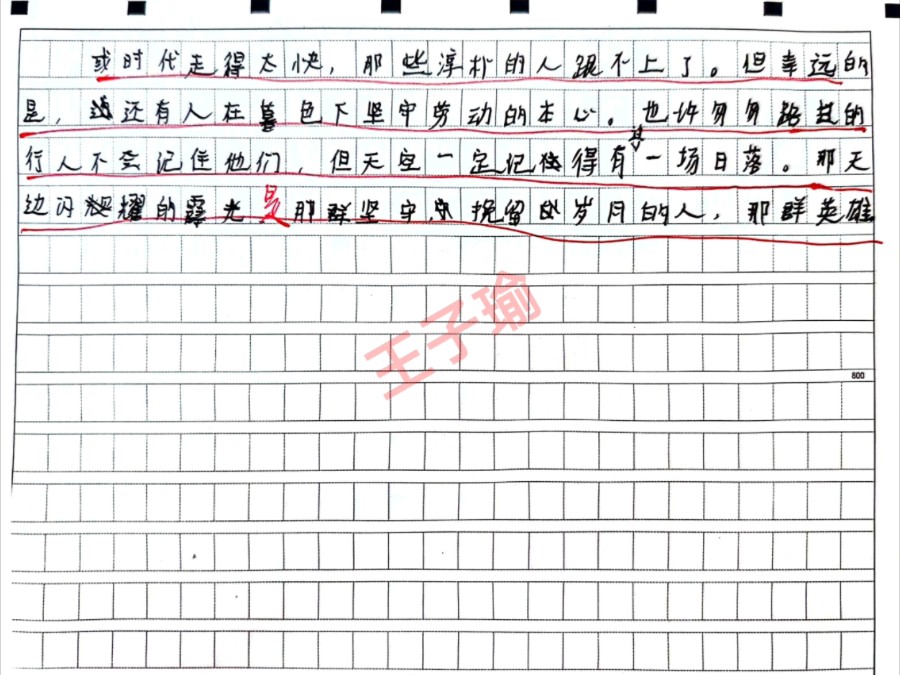 或时代走得太快，那些淳朴的人跟不上了。但幸远的
是，还有人在暮色下坚守劳动的本心。也许匆匆路过的
行人不会记住他们，但天空一定记得有其一场日落。那天
边闪耀的霞光是那群坚守、挽留岁月的人，那群英雄
王子瑜
600